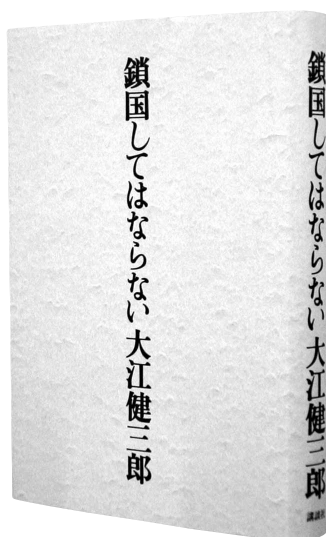 鎖国してはならない 大江健三郎
鎖国してはならない 大江健三郎
講談社